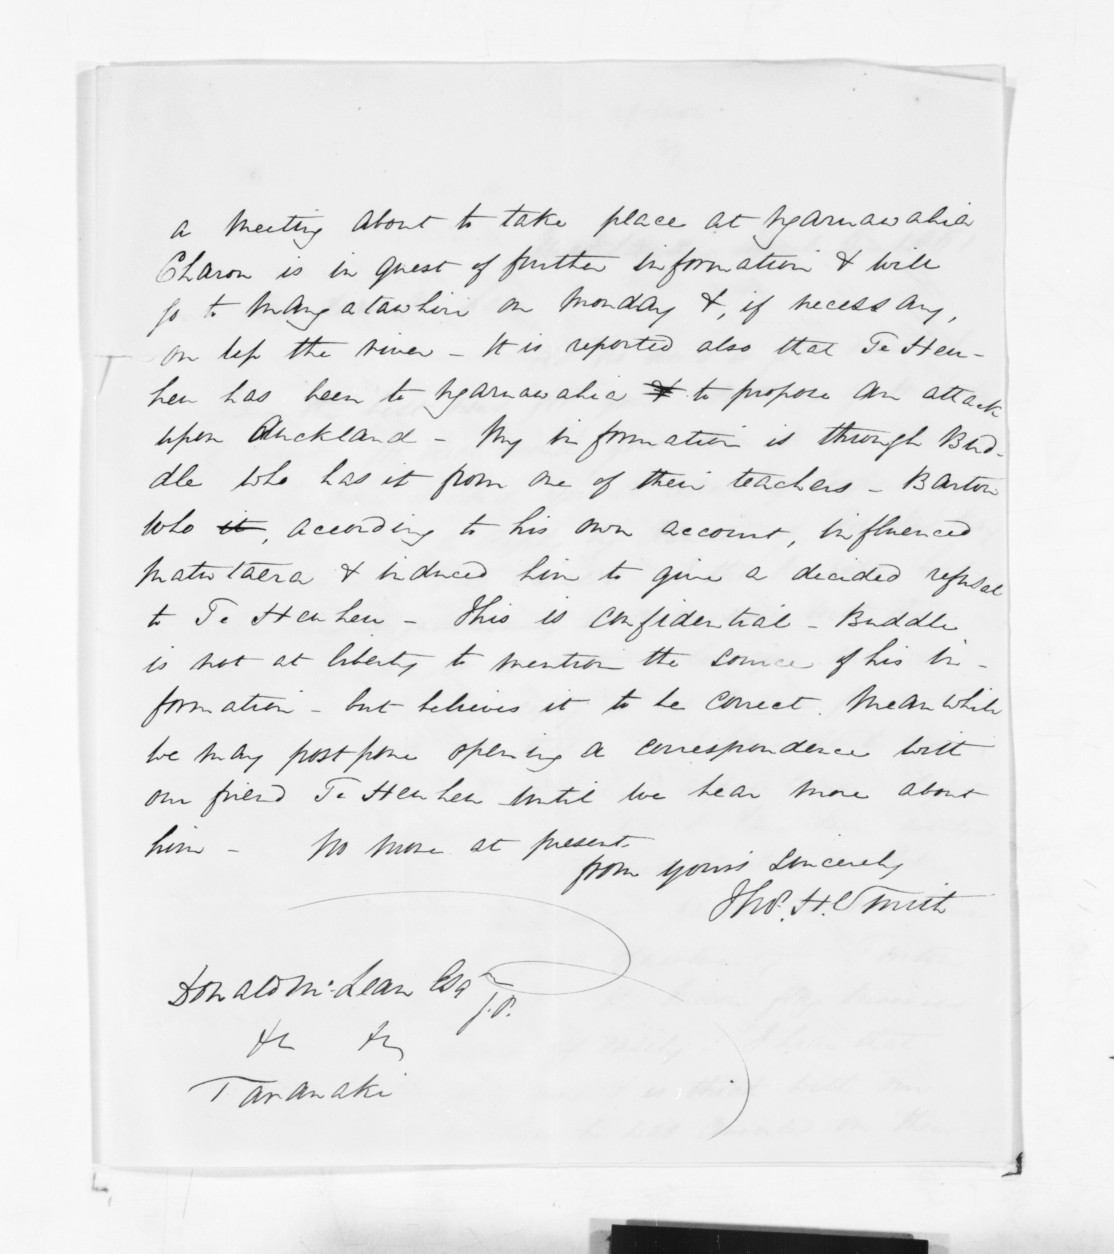 a meeting about to take place at Ngaruawahia
Charon is in quest of further information & will
go to Mangatawhiri on Monday &, if necessary,
on up the river - It is reported also that Te Heu-
heu has been to Ngaruawahia & to propose an attack
upon Auckland - My information is through Bud-
dle who has it from one of their teachers - Barton
who it, according to his own account, influenced
Matutaera & induced him to give a decided refusal
to Te Heuheu - This is confidential - Buddle
is not at liberty to mention the source of his in-
formation - but believes it to be correct. Meanwhile
we may postpone opening a correspondence with
our friend Te Heuheu until we hear more about
him - No more at present
from yours sincerely
Thos. H. Smith
Donald McLean Esqr
J.P.
&c &c
Taranaki